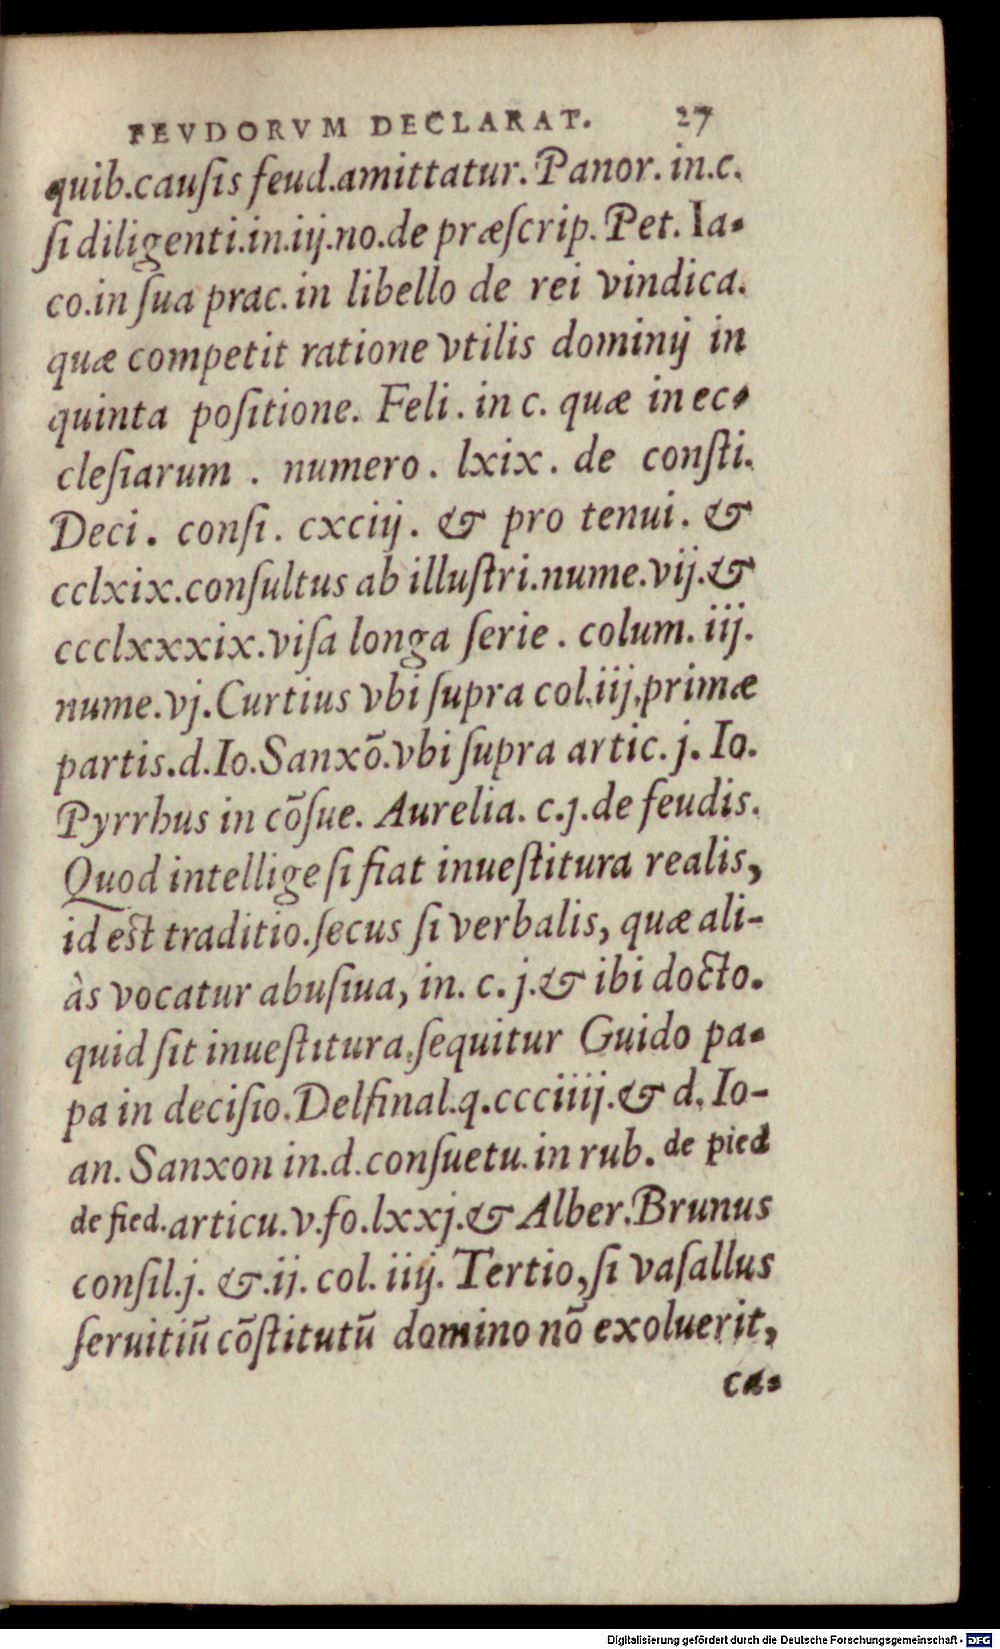 FEVDORVM DECLARAT. 27
quib.cauſis feud.amittatur. Panor. in.c.
ſi diligenti.in.iij.no.de præſcrip. Pet. Ia-
co.in ſua prac. in libello de rei vindica.
quæ competit ratione vtilis dominij in
quinta poſitione. Feli. in c. quæ in ec-
cleſiarum . numero . lxix . de conſti.
Deci . conſi . cxciij . & pro tenui . &
cclxix.conſultus ab illuſtri.nume.vij.&
ccclxxxix.viſa longa ſerie . colum. iij.
nume.vj.Curtius vbi ſupra col.iij.primæ
partis.d.Io.Sanxõ.vbi ſupra artic. j. Io.
Pyrrhus in cõſue. Aurelia. c.j.de feudis.
Quod intellige ſi fiat inueſtitura realis,
id eſt traditio.ſecus ſi verbalis, quæ ali-
às vocatur abuſiua, in. c. j.& ibi docto.
quid ſit inueſtitura,ſequitur Guido pa-
pa in deciſio.Delfinal.q.ccciiij.& d. Io-
an. Sanxon in.d.conſuetu.in rub. de pied
de fied.articu.v.fo.lxxj.& Alber.Brunus
conſil.j. &.ij. col. iiij. Tertio,ſi vaſallus
ſeruitiũ cõſtitutũ domino nõ exoluerit,
ca-
Digitalisierung gefördert durch die Deutsche Forschungsgemeinschaft - DFG